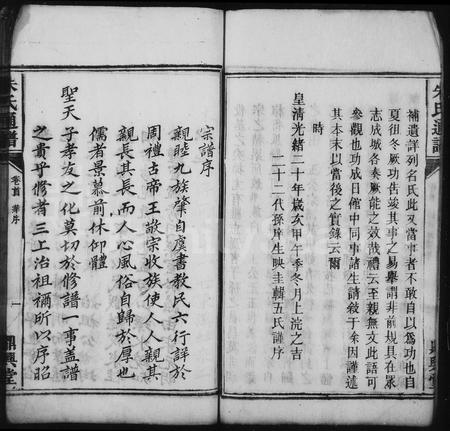 補遺詳列名氏此又當事者不敢自以為功也自
夏徂冬厥功吿竣其事之易舉謂非前規具在眾
志成城各奏厥能之效哉禮云至親無文此語可
參觀也功成日僅中同事諸生請敘于余因謹述
其本末以當後之實錄云爾
時
皇清光緒二十年歲次甲午季冬月上浣之吉
二十二代孫庠生映圭輯五氏謹序
朱氏通譜
鼎興堂
宗譜序
親睦九族肇自虞書教民六行詳於
周禮古帝王敬宗收族使人人親其
親長其長而人心風俗自歸於厚也
儒者景慕前休仰體
聖天子孝友之化莫切於修譜一事蓋譜
之貴乎修者三上治祖禰所以序昭
朱氏通譜
卷首 華序
一
鼎興堂